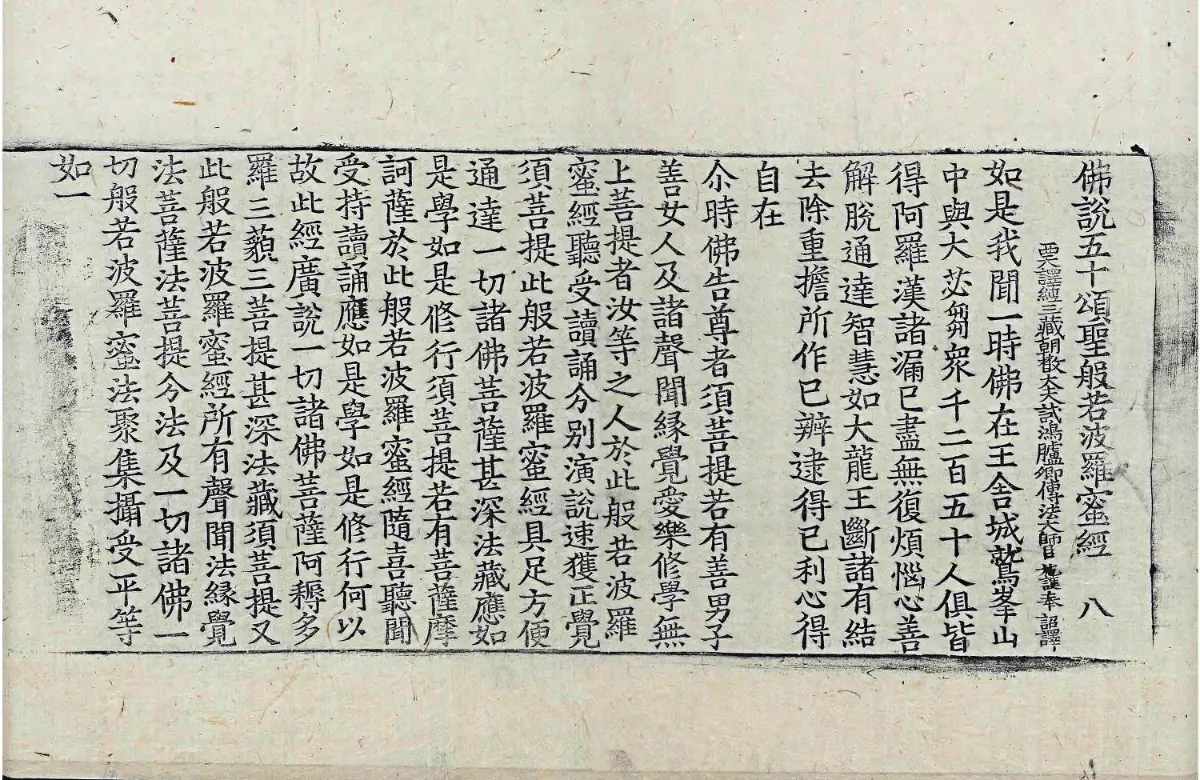 佛說五十頌聖般若波羅蜜經 八
西天譯經三藏朝散大夫試鴻臚卿傳法大師臣施護奉 詔譯
如是我聞一時佛在王舍城鷲峯山
中與大苾芻衆千二百五十人俱皆
得阿羅漢諸漏已盡無復煩惱心善
解脫通達智慧如大龍王斷諸有結
去除重擔所作已辦逮得己利心得
自在
尒時佛告尊者須菩提若有善男子
善女人及諸聲聞緣覺愛樂修學無
上菩提者汝等之人於此般若波羅
蜜經聽受讀誦分別演說速獲正覺
須菩提此般若波羅蜜經具足方便
通達一切諸佛菩薩甚深法藏應如
是學如是修行須菩提若有菩薩摩
訶薩於此般若波羅蜜經隨喜聽聞
受持讀誦應如是學如是修行何以
故此經廣說一切諸佛菩薩阿耨多
羅三藐三菩提甚深法藏須菩提又
此般若波羅蜜經所有聲聞法緣覺
法菩薩法菩提分法及一切諸佛一
切般若波羅蜜法聚集攝受平等
如一